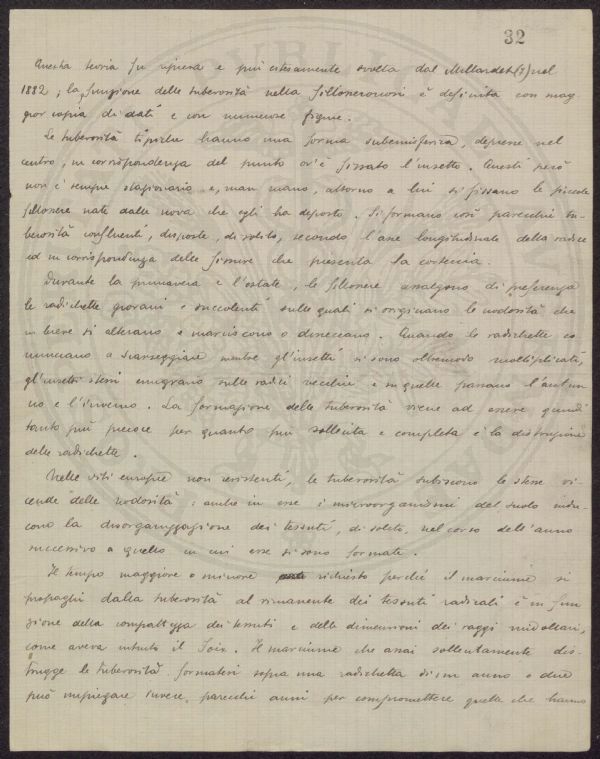 32
Questa teoria fu ripresa e più estesamente svolta dal Millardet (1) nel
1882; la funzione delle tuberosità nella fillosseronosi è definita con mag
gior copia di dati e con numerose figure.
Le tuberosità tipiche hanno una forma subemisferica, depressa nel
centro, in corrispondenza del punto ov'è fissato l'insetto. Questi però
non è sempre stazionario e, man mano, attorno a lui si fissano le piccole
fillossere nate dalle uova che egli ha deposto. Si formano così parecchie tu-
berosità confluenti, disposte, di solito, secondo l'asse longitudinale della radice
ed in corrispondenza delle fissure che presenta la corteccia.
Durante la primavera e l'estate, le fillossere assalgono di preferenza
le radichette giovani e succolenti sulle quali si originano le nodosità che
in breve si alterano e marciscono o disseccano. Quando le radichette co
minciano a scarseggiare mentre gl'insetti si sono oltremodo moltiplicati,
gl'insetti stessi emigrano sulle radici vecchie e su quelle passano l'autun
no e l'inverno. La formazione delle tuberosità viene ad essere quindi
tanto più precoce per quanto più sollecita e completa è la distruzione
delle radichette.
Nelle viti europee non resistenti, le tuberosità subiscono le stesse vi
cende delle nodosità: anche in esse i microorganismi del suolo indu-
cono la disorganizzazione dei tessuti, di solito, nel corso dell'anno
successivo a quello in cui esse si sono formate.
Il tempo maggiore o minore richiesto perché il marciume si
propaghi dalla tuberosità al rimanente dei tessuti radicali è in fun
zione della compattezza dei tessuti e delle dimensioni dei raggi midollari,
come aveva intuito il Foëx. Il marciume che assai sollecitamente dis-
trugge le tuberosità formatesi sopra una radichetta di un anno o due
può impiegare invece, parecchi anni per compromettere quelle che hanno